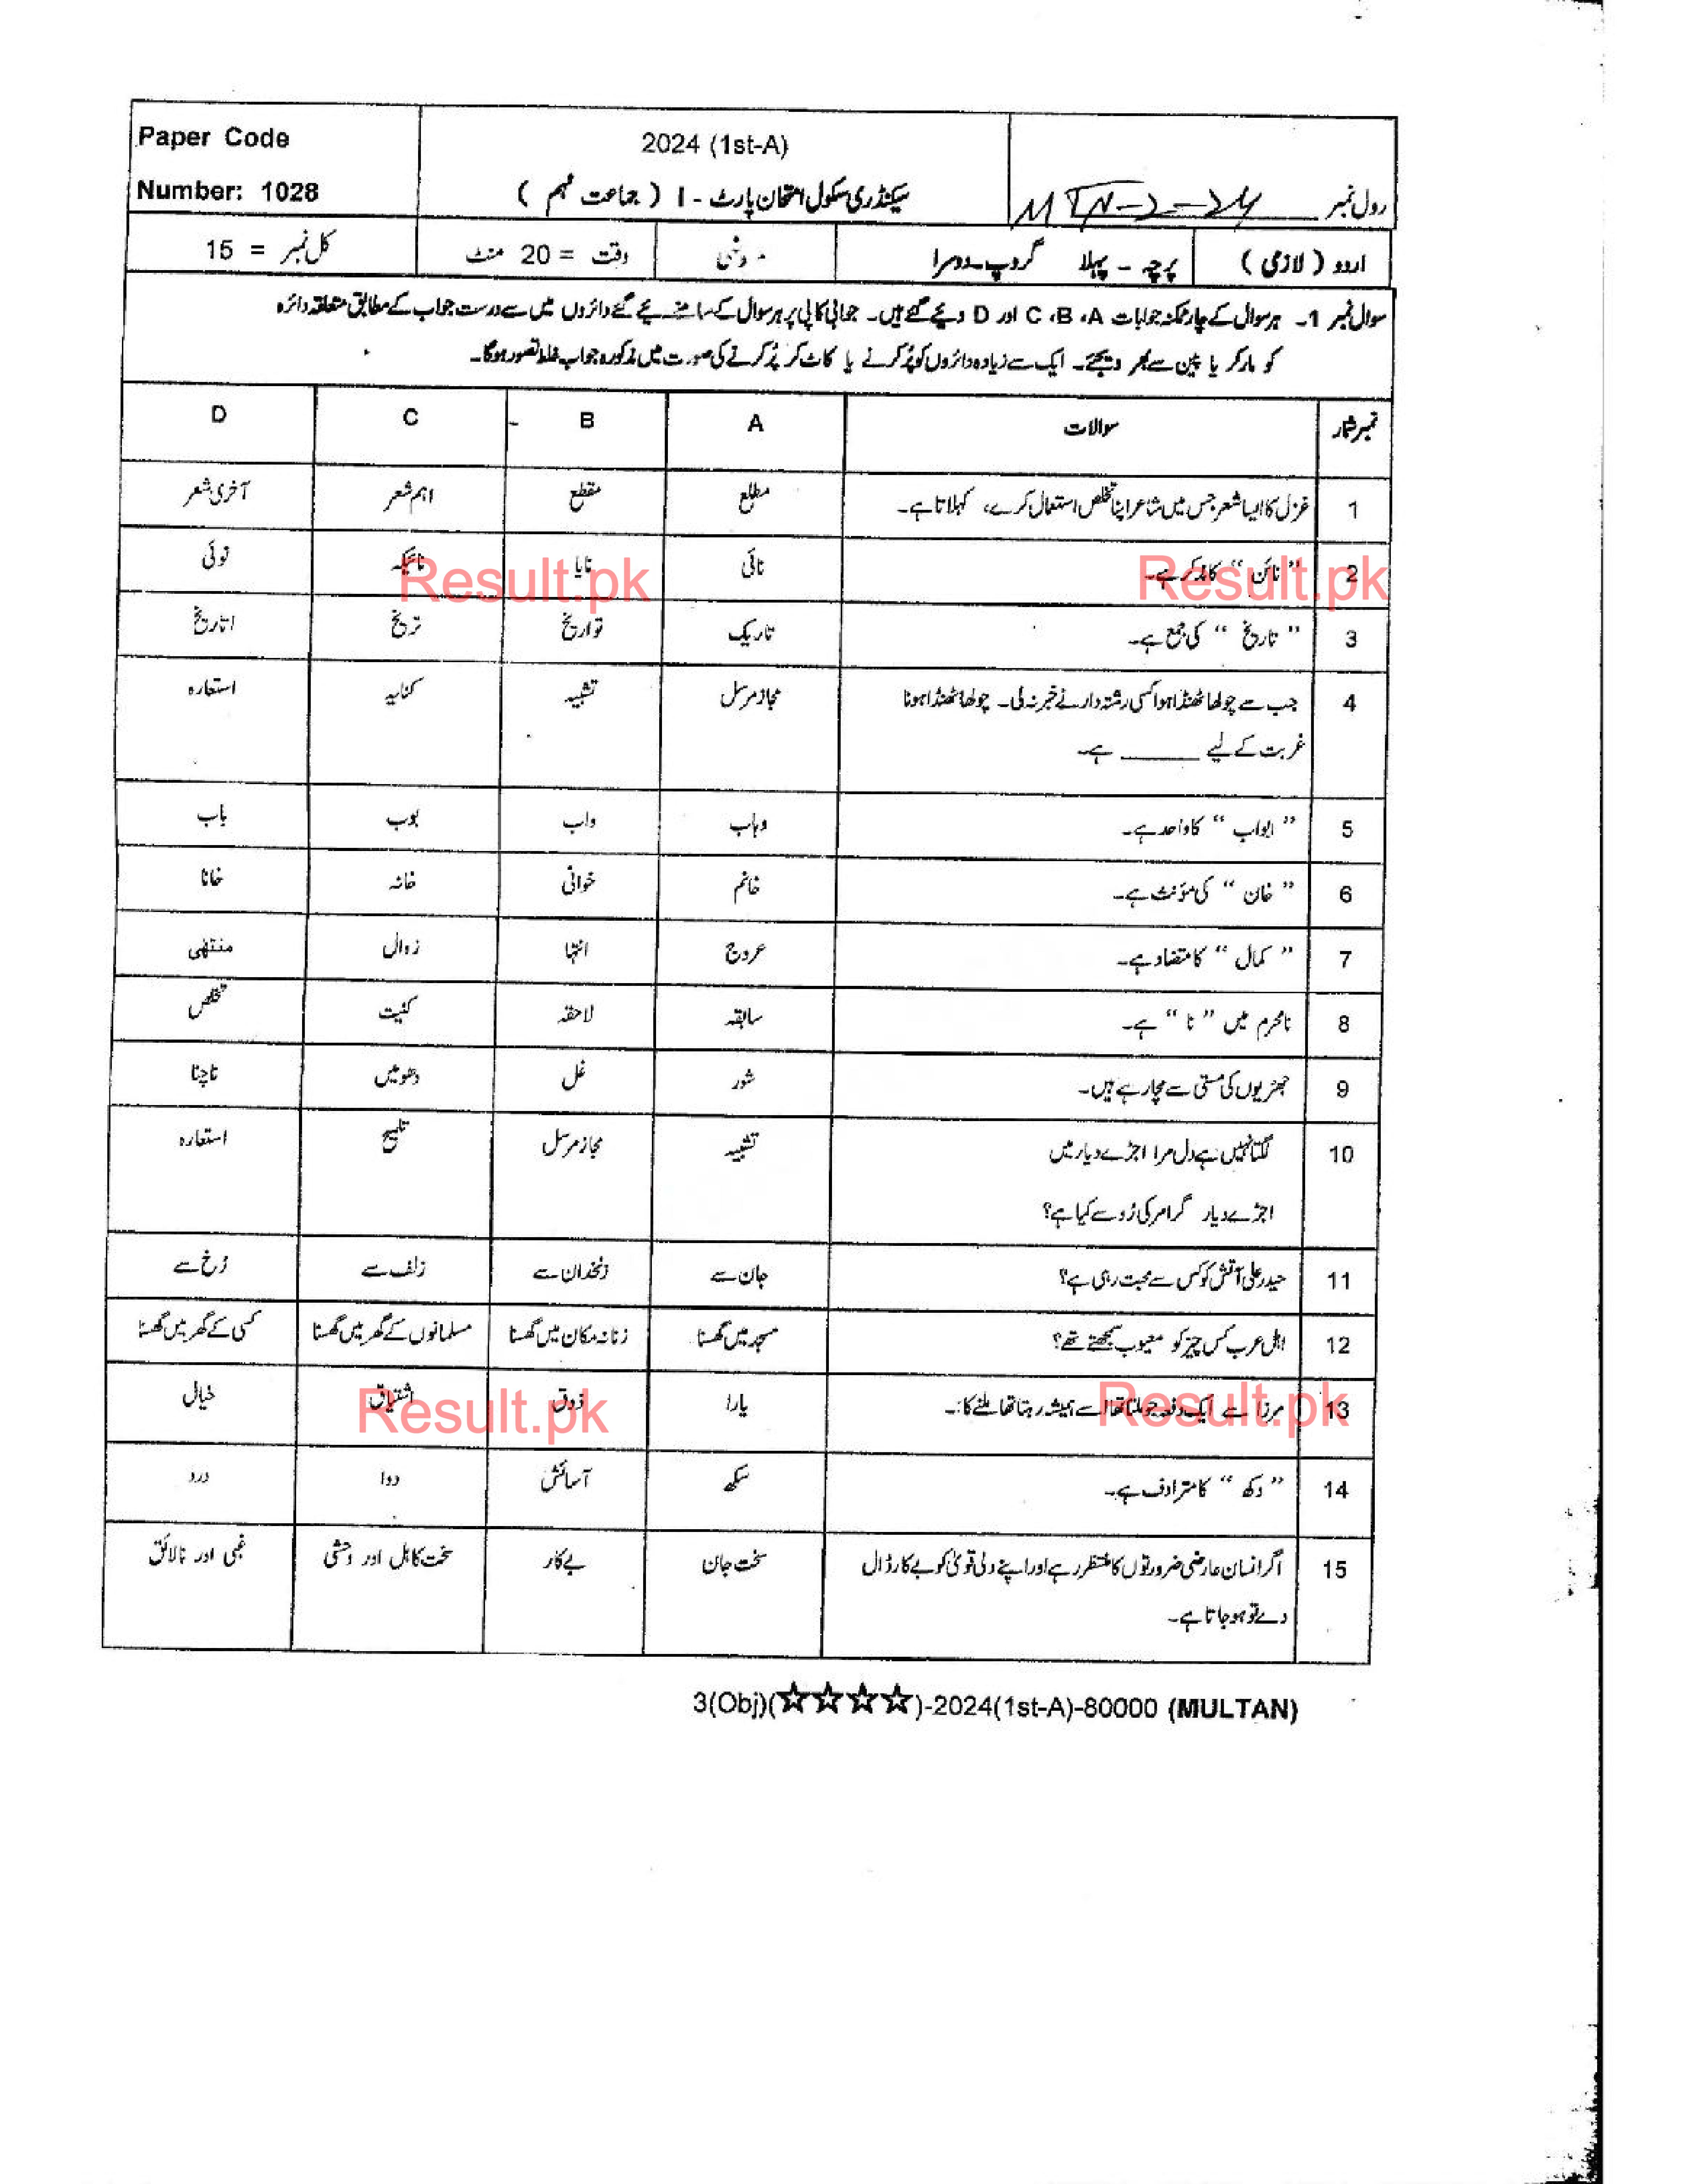 Paper Code
Number: 1028
2024 (1st-A)
سیکنڈری سکول امتحان پارٹ - I ( جماعت نہم )
رول نمبر MTN-2-24
اردو ( لازمی ) پرچہ - پہلا گروپ - دوسرا وقت = 20 منٹ کل نمبر = 15
سوال نمبر 1۔ ہر سوال کے چار ممکنہ جوابات A، B، C اور D دیئے گئے ہیں۔ جوابی کاپی پر ہر سوال کے سامنے دیئے گئے دائروں میں سے درست جواب کے مطابق متعلقہ دائرہ
کو مارکر یا پین سے بھر دیجئے۔ ایک سے زیادہ دائروں کو پُر کرنے یا کاٹ کر پُر کرنے کی صورت میں مذکورہ جواب غلط تصور ہوگا۔
نمبر شمار سوالات A B C D
1 غزل کا ایسا شعر جس میں شاعر اپنا تخلص استعمال کرے، کہلاتا ہے۔ مطلع مقطع اہم شعر آخری شعر
2 " نائن " کا مذکر ہے۔ نائی نایا نائیکہ نوئی
3 " تاریخ " کی جمع ہے۔ تاریک تواریخ تریخ اتاریخ
4 جب سے چولھا ٹھنڈا ہوا کسی رشتہ دار نے خبر نہ لی۔ چولھا ٹھنڈا ہونا مجاز مرسل تشبیہ کنایہ استعارہ
غربت کے لیے ______ ہے۔
5 " ابواب " کا واحد ہے۔ وہاب واب بوب باب
6 " خان " کی مؤنث ہے۔ خانم خوانی خانہ خانا
7 " کمال " کا متضاد ہے۔ عروج انتہا زوال منتھی
8 نامحرم میں " نا " ہے۔ سابقہ لاحقہ کنیت تخلص
9 جھڑیوں کی مستی سے مچا رہے ہیں۔ شور غل دھومیں ناچنا
10 لگتا نہیں ہے دل مرا اجڑے دیار میں تشبیہ مجاز مرسل تلمیح استعارہ
اجڑے دیار گرامر کی رُو سے کیا ہے؟
11 حیدر علی آتش کو کس سے محبت رہی ہے؟ جان سے زنخدان سے زلف سے رُخ سے
12 اہل عرب کس چیز کو معیوب سمجھتے تھے؟ مسجد میں گھسنا زنانہ مکان میں گھسنا مسلمانوں کے گھر میں گھسنا کسی کے گھر میں گھسنا
13 مرزا سے ایک دفعہ جو ملتا تھا اسے ہمیشہ رہتا تھا ملنے کا:۔ یارا ذوق اشتیاق خیال
14 " دکھ " کا مترادف ہے۔ سکھ آسائش دوا درد
15 اگر انسان عارضی ضرورتوں کا منتظر رہے اور اپنے دلی قویٰ کو بے کار ڈال سخت جان بے کار سخت کاہل اور وحشی غبی اور نالائق
دے تو ہو جاتا ہے۔
3(Obj)(☆☆☆☆)-2024(1st-A)-80000 (MULTAN)
Result.pk
Result.pk
Result.pk
Result.pk